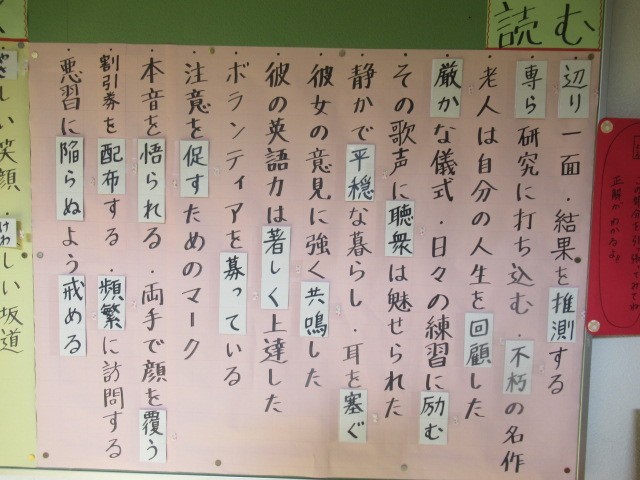 読む
・辺り一面・結果を推測する
・専ら研究に打ち込む・不朽の名作
・老人は自分の人生を回顧した
・厳かな儀式・日々の練習に励む
・その歌声に聴衆は魅せられた
・静かで平穏な暮らし・耳を塞ぐ
・彼女の意見に強く共鳴した
・彼の英語力は著しく上達した
・ボランティアを募っている
・注意を促すためのマーク
・本音を悟られる・両手で顔を覆う
・割引券を配布する・頻繁に訪問する
・悪習に陥らぬよう戒める
しい笑顔・けわしい坂道
正解がわかるよ。